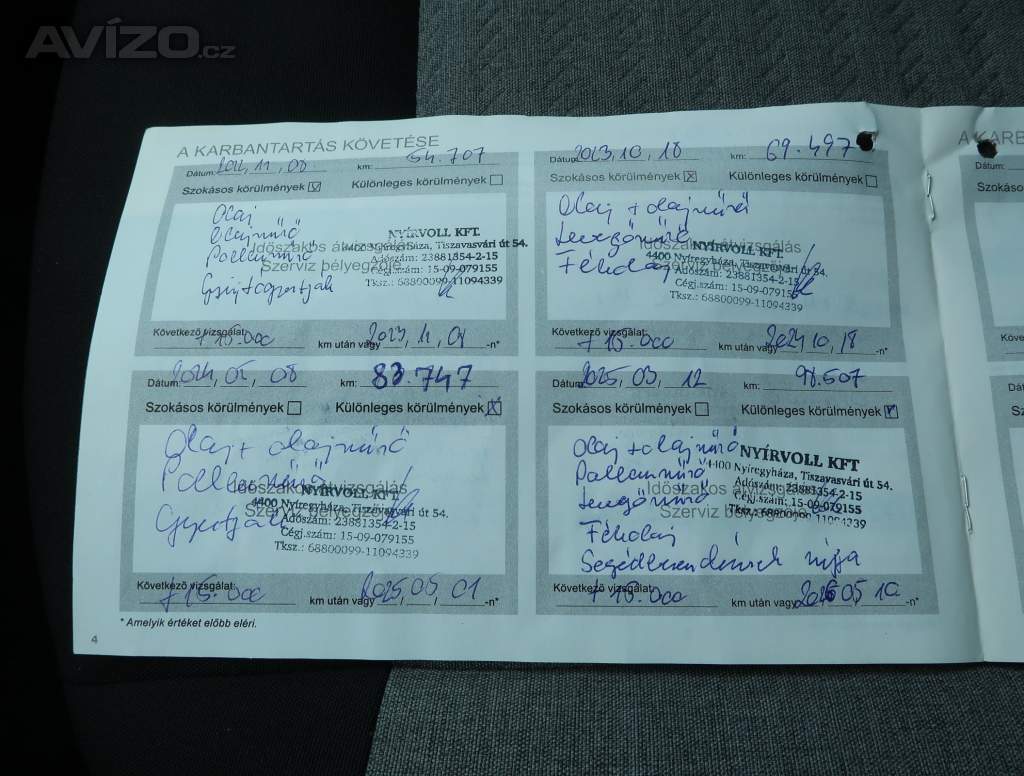 AVÍZO.cz
A KARBANTARTÁS KÖVETÉSE
Dátum: 2022, 11, 08 km: 54.707
Szokásos körülmények Különleges körülmények
Olaj
Olajszűrő
Pollenszűrő
Gyújtógyertyák
Időszakos átvizsgálás
Szerviz bélyegzője
NYÍRVOLL KFT.
4400 Nyíregyháza, Tiszavasvári út 54.
Adószám: 23881354-2-15
Cégj.szám: 15-09-079155
Tksz.: 68800099-11094339
Következő vizsgálat: +15.000 km után vagy 2023, 11, 01 -n*
Dátum: 2023, 10, 18 km: 69.497
Szokásos körülmények X Különleges körülmények
Olaj + olajszűrő
Levegőszűrő
Fékolaj
Időszakos átvizsgálás
Szerviz bélyegzője
NYÍRVOLL KFT.
4400 Nyíregyháza, Tiszavasvári út 54.
Adószám: 23881354-2-15
Cégj.szám: 15-09-079155
Tksz.: 68800099-11094339
Következő vizsgálat: +15.000 km után vagy 2024, 10, 18 -n*
Dátum: 2024, 08 km: 83.747
Szokásos körülmények Különleges körülmények X
Olaj + olajszűrő
Pollenszűrő
Időszakos átvizsgálás
Szerviz bélyegzője
NYÍRVOLL KFT.
4400 Nyíregyháza, Tiszavasvári út 54.
Adószám: 23881354-2-15
Cégj.szám: 15-09-079155
Tksz.: 68800099-11094339
Következő vizsgálat: +15.000 km után vagy 2025, 05, 01 -n*
Dátum: 2025, 03, 12 km: 98.507
Szokásos körülmények Különleges körülmények
Olaj + olajszűrő
Pollenszűrő
Levegőszűrő
Fékolaj
Időszakos átvizsgálás
Szerviz bélyegzője
NYÍRVOLL KFT
4400 Nyíregyháza, Tiszavasvári út 54.
Adószám: 23881354-2-15
Cégj.szám: 15-09-079155
Tksz.: 68800099-11094339
Következő vizsgálat: +15.000 km után vagy 2026 05 10 -n*
* Amelyik értéket előbb eléri.
4
A KARBAN
Szokáso
Köve
Dátum
Szokás
Követ